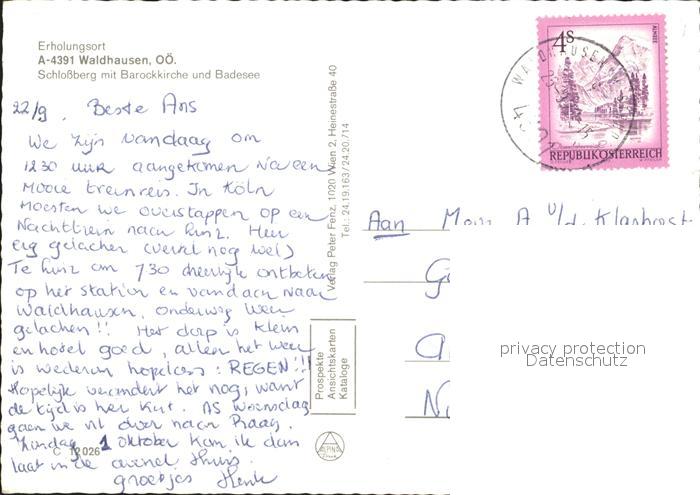 Erholungsort
A-4391 Waldhausen, OÖ.
Schloßberg mit Barockkirche und Badesee
22/9. Beste Ans
We zijn vandaag om
12 30 uur aangekomen na een
mooie treinreis. In Köln
moesten we overstappen op een
nachttrein naar Linz. Heel
erg gelachen (vertel nog wel)
Te Linz om 7 30 heerlijk ontbeten
op het station en vandaar naar
Waldhausen, onderweg weer
gelachen!! Het dorp is klein
en hotel goed, alleen het weer
is wederom hopeloos: REGEN!!!
Hopelijk verandert het nog, want
de tijd is hier kort. AS Woensdag
gaan we nl door naar Praag.
Zondag 1 oktober kom ik dan
laat in de avond thuis.
groetjes Henk
C 12026
Verlag Peter Fenz, 1020 Wien 2, Heinestraße 40
Tel.: 24.19.163/24.20.714
Prospekte
Ansichtskarten
Kataloge
ALPINA
4S
ALMSEE
REPUBLIK ÖSTERREICH
WALDHAUSEN
Aan Mevr A v/d
privacy protection
Datenschutz